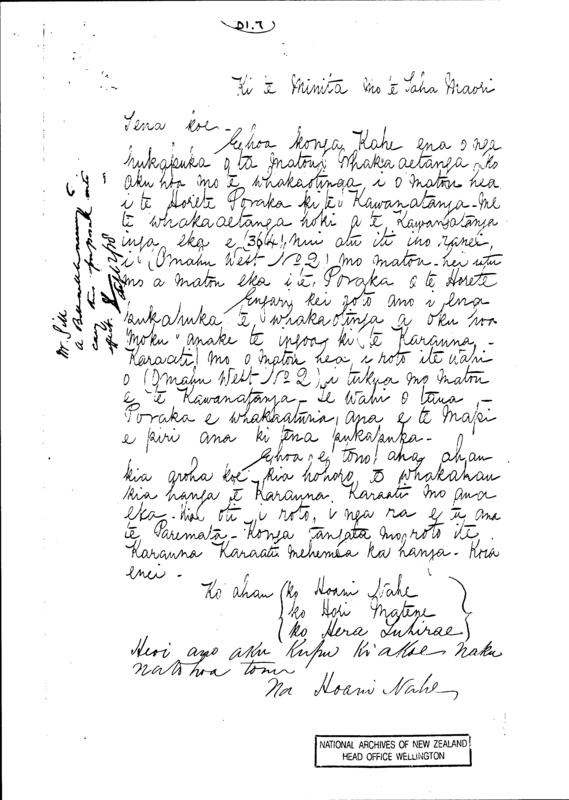 D1.7
Ki te Minita mo te Taha Maori
Tena koe -
Ehoa konga Kahe ena o nga
Pukapuka o ta matou Whakaaetanga ko
Oku hoa mo te whakaotinga i o matou hea
i te Horete Poraka ki te Kawanatanga - me
te whakaaetanga hoki a te Kawanatanga
inga eka e (364) nui atu iti iho ranei,
i (Omahu West No 2) mo matou - hei utu
mo a matou eka i te Poraka o te Horete
Engari kei goto ano i ena
pukapuka te whakaotinga a oku hoa
moku anake te ingoa ki te Karauna -
Karaati mo o matou hea i roto ite wahi
o (Omahu West No 2) i tukua mo matou
e te Kawanatanga - Te Wahi o taua -
Poraka e whakaaturia ana e te Mapi
e piri ana ki tena pukapuka -
Ehoa, e tono ana ahau
kia aroha koe kia hohoro to whakahau
kia hanga te Karauna Karaati mo aua
eka - kia oti i roto i nga ra e tu ana
te Paremata - Konga tangata mo roto ite
Karauna Karaati mehemea ka hanga - Koia
enei -
Ko ahau ko Hoani Nahe
ko Hori Matene
ko Hera Puhirae
Heoi ano aku Kupu Ki a koe naku
na to hoa tonu
Na Hoani Nahe
Mr Gill
NATIONAL ARCHIVES OF NEW ZEALAND
HEAD OFFICE WELLINGTON